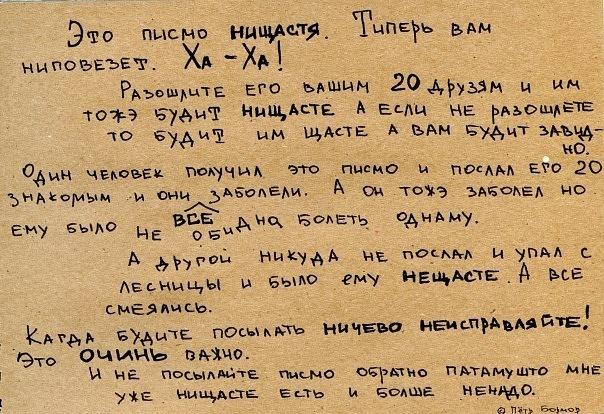 Это писмо нищастя. Типерь вам
ниповезет. Ха-Ха!
Разошлите его вашим 20 друзям и им
тожэ будит нищасте а если не разошлёте
то будит им щасте а вам будит завид-
но.
Один человек получил это писмо и послал его 20
знакомым и они все заболели. А он тожэ заболел но
ему было не обидна болеть одному.
А другой никуда не послал и упал с
лесницы и было ему нещасте. А все
смеялись.
Кагда будите посылать ничево неисправляйте!
Это очинь важно.
И не посылайте писмо обратно патамушто мне
уже нищасте есть и болше ненадо.
© Пётр Бормор